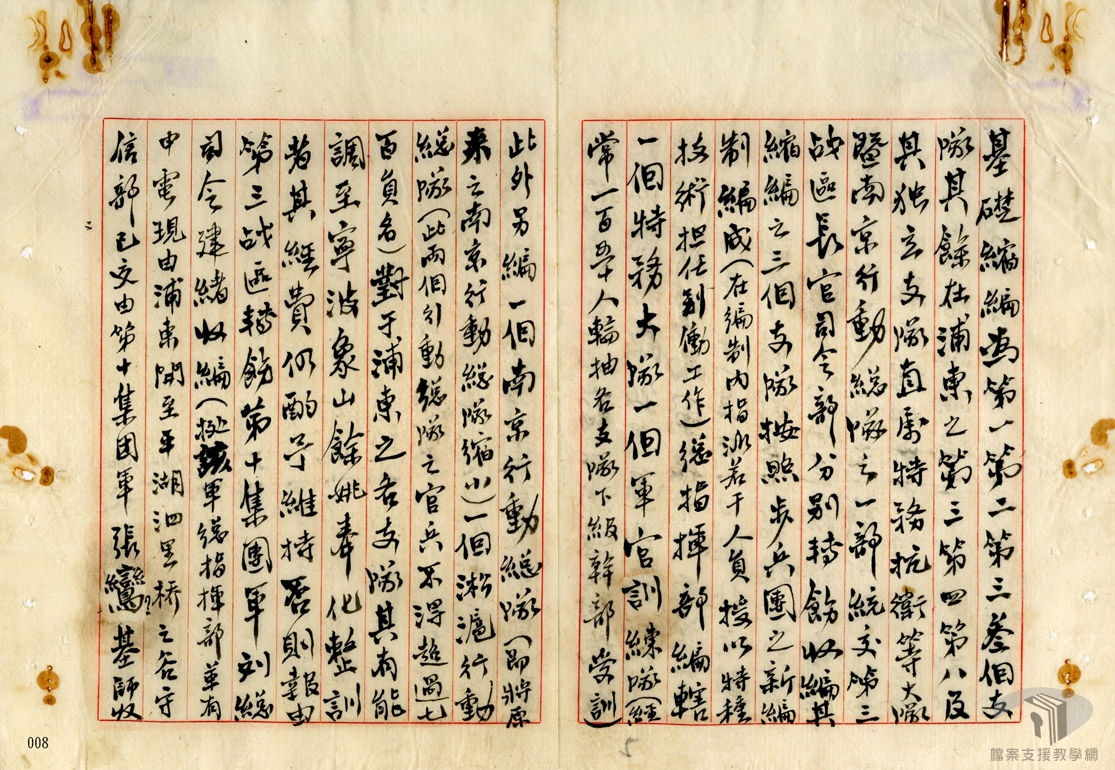 基礎縮編為第一第二第三叁個支
隊其餘在浦東之第三第四第八及
其独立支隊直屬特務抗衛等大隊
暨南京行動總隊之一部統交第三
战區長官司令部分别轉飭收編其
縮編之三個支隊按照步兵團之新編
制編成(在編制內指派若干人員授以特種
技術担任剷働工作)總指揮部編轄
一個特務大隊一個軍官訓練隊(經
常一百五十人輪抽各支隊下級幹部受訓)
此外另編一個南京行動總隊(即將原
来之南京行動總隊縮小)一個淞滬行動
總隊(此兩個行動總隊之官兵不得超過七
百員名)對于浦東之各支隊其有能
調至寧波象山餘姚奉化整訓
者其經費仍酌予維持否則報由
第三战區轉飭第十集團軍刘總
司令建緒收編(據該軍總指揮部華有
申電現由浦東開至平湖泗里橋之各守
信部已交由第十集團軍張鑾基師收
5
008
檔案支援教學網